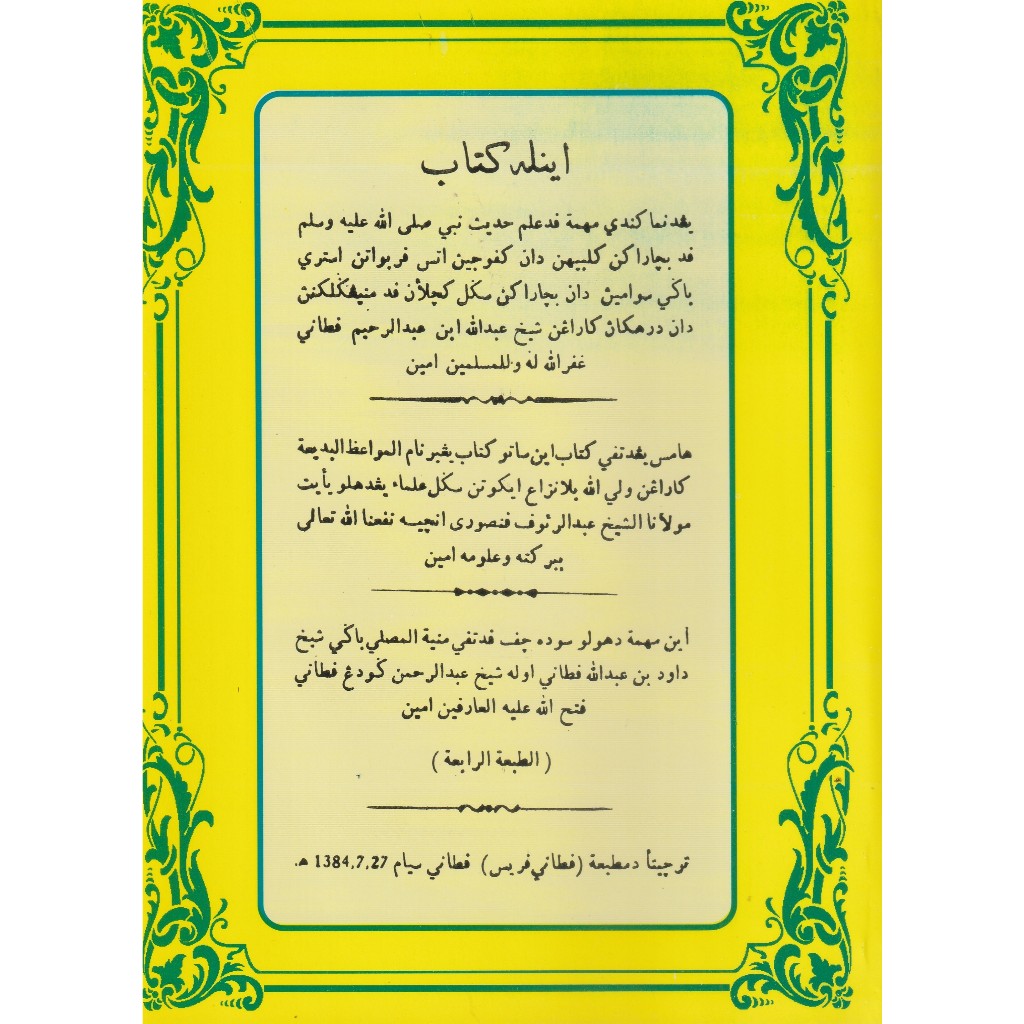 اينله كتاب
يڠدنما كندي مهمة فد علم حديث نبي صلى الله عليه وسلم
فد بچاراكن كلبيهن دان كفوجين اتس فربواتن استري
باڬي سوامين دان بچاراكن سڬل كچلأن فد منيڠڬلكنڽ
دان درهكاڽ كاراڠن شيخ عبدالله ابن عبدالرحيم فطاني
غفرالله له وللمسلمين امين
هامس يڠدتفي كتاب اين ساتو كتاب يڠبرنام المواعظ البديعة
كاراڠن ولي الله بلانزاع ايكوتن سڬل علماء يڠدهلو يأيت
مولانا الشيخ عبدالرئوف فنصورى انچيه نفعنا الله تعالى
ببركته وعلومه امين
أين مهمة دهولو سوده چف فدتفي منية المصلي باڬي شيخ
داود بن عبدالله فطاني اوله شيخ عبدالرحمن ڬودڠ فطاني
فتح الله عليه العارفين امين
( الطبعة الرابعة )
ترچيتأ دمطبعة (فطاني فريس) فطاني سيام 1384,7,27 هـ.